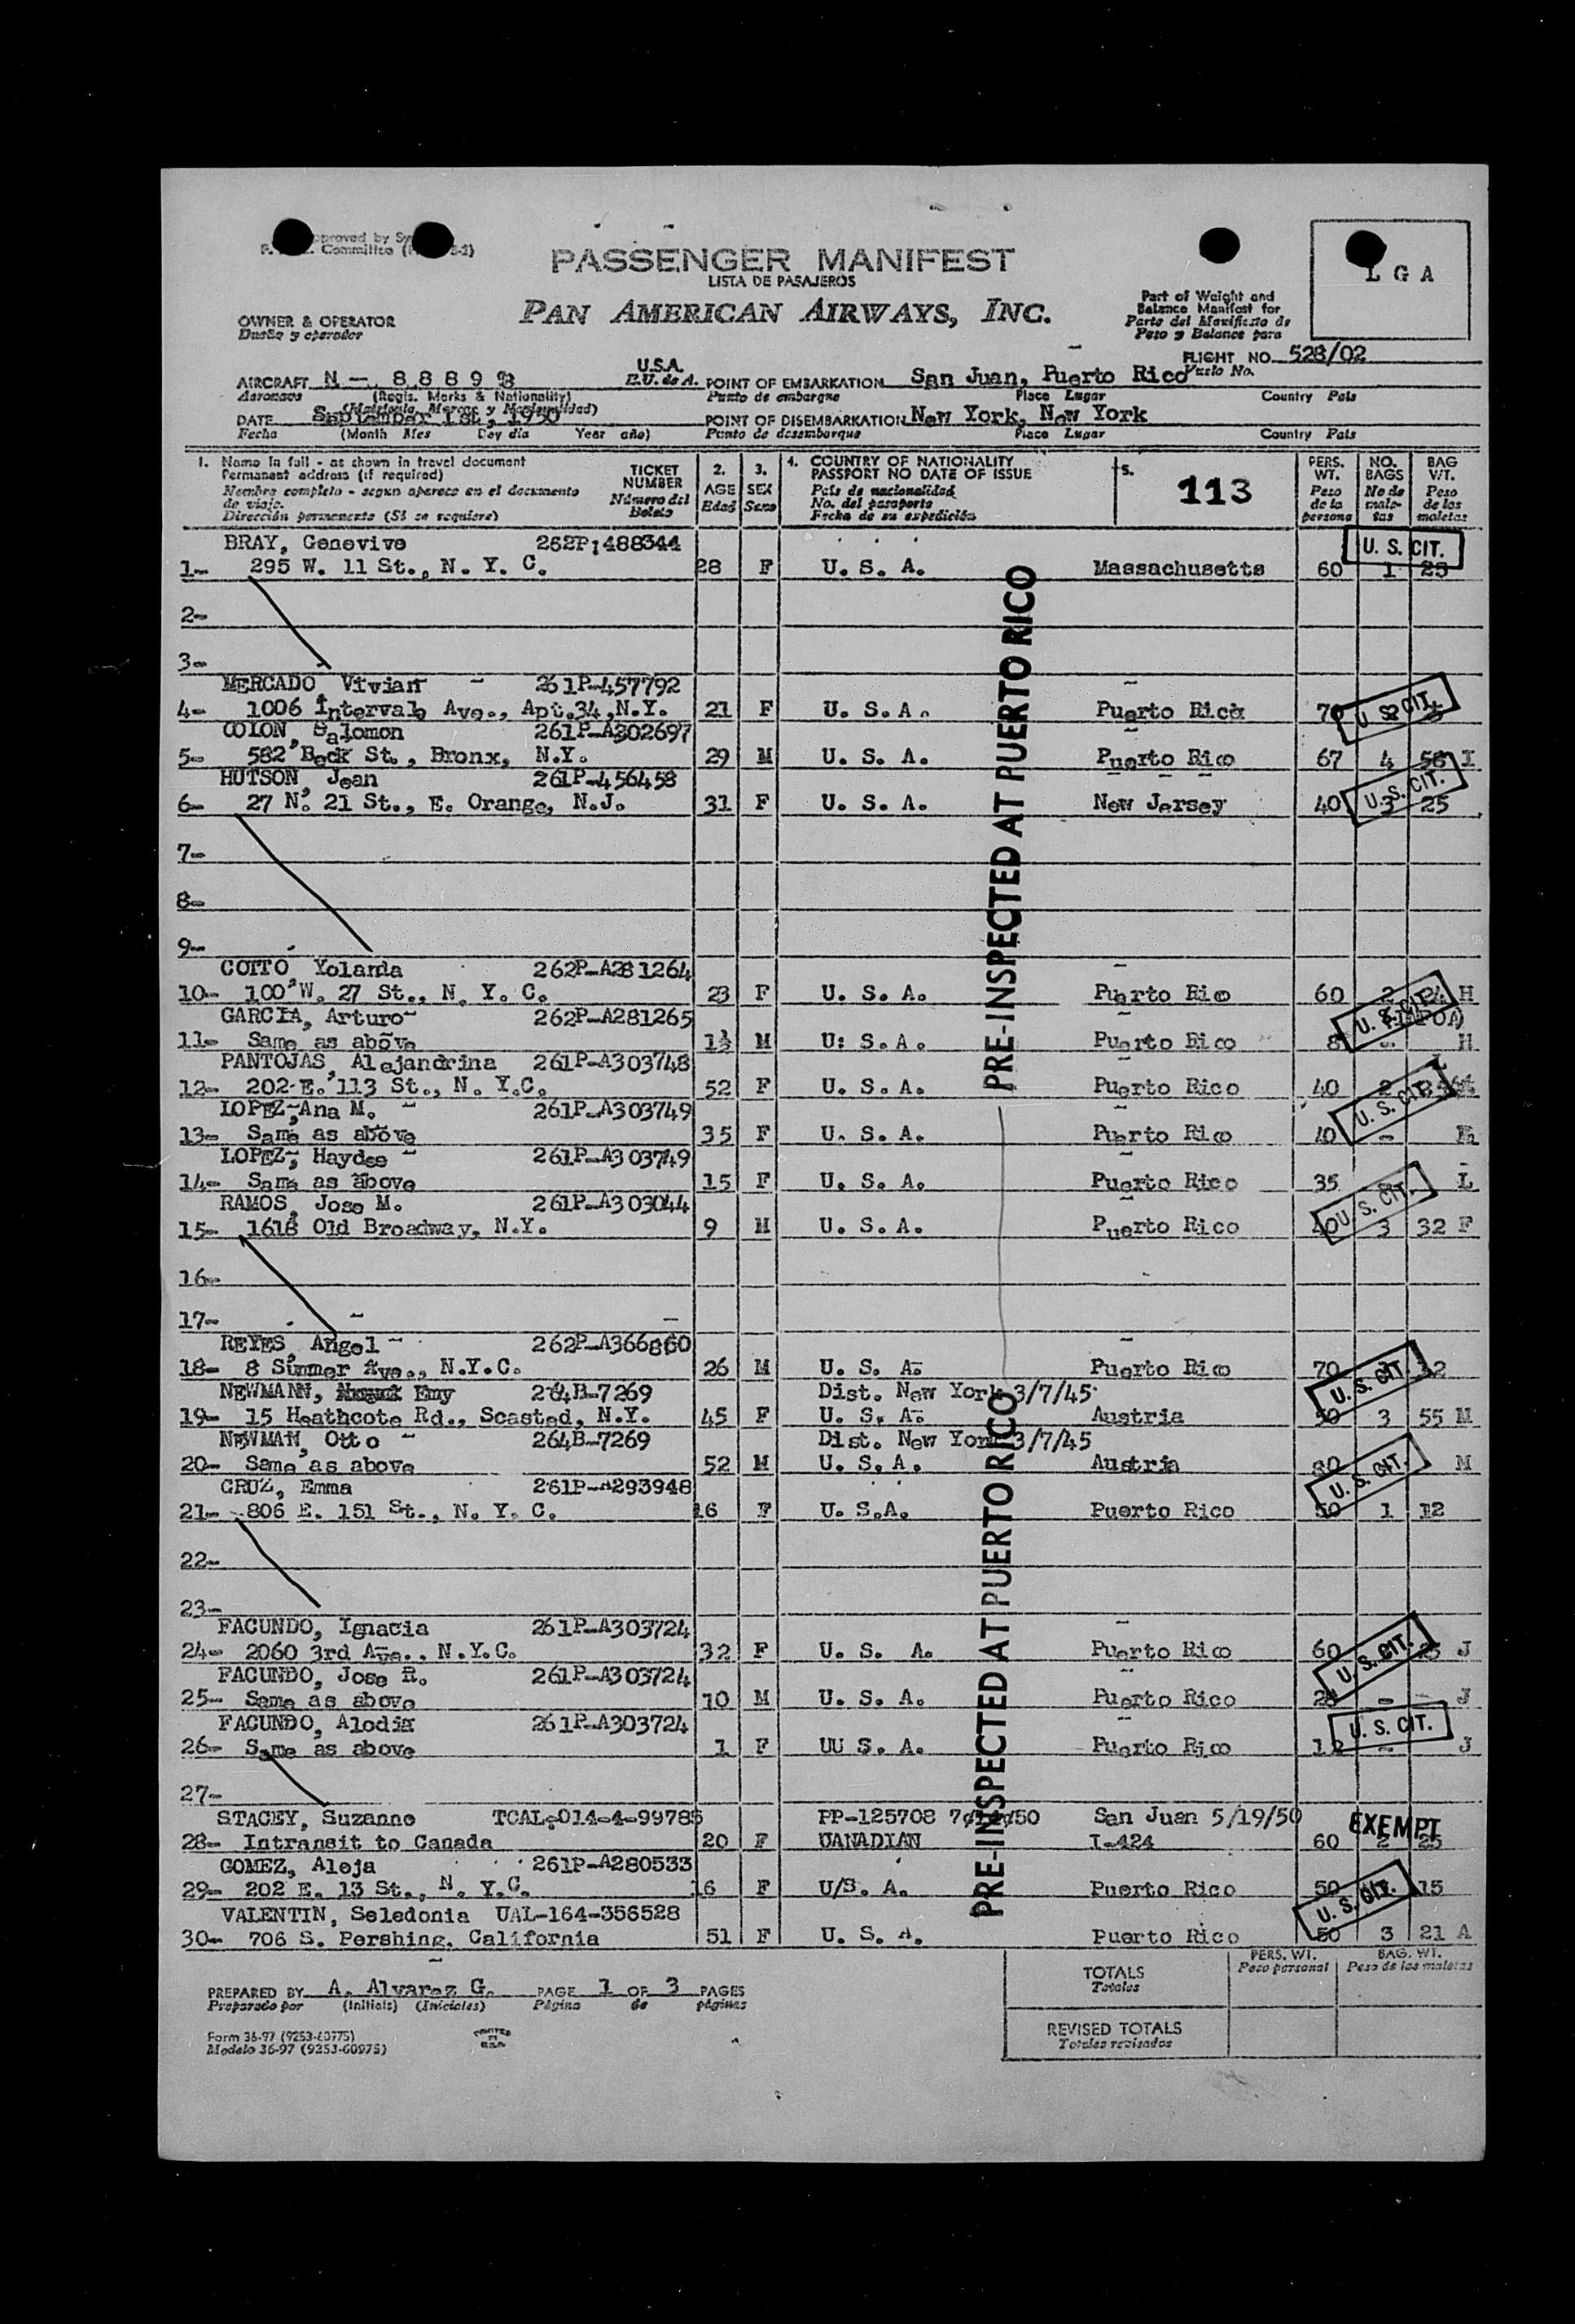 PASSENGER MANIFEST
LISTA DE PASAJEROS
PAN AMERICAN AIRWAYS, INC.
L G A
Part of Weight and
Balance Manifest for
Parte del Manifiesto de
Peso y Balance para
OWNER & OPERATOR
Dueño y operador
FLIGHT NO. 528/02
Vuelo No.
AIRCRAFT N - 8 8 8 9 8 U.S.A. E.U. de A.
Aeronave (Regis. Marks & Nationality)
(Matricula, Marcas y Nacionalidad)
POINT OF EMBARKATION San Juan, Puerto Rico
Punto de embarque Place Lugar Country Pais
DATE September 1st, 1950
Fecha (Month Mes Day dia Year año)
POINT OF DISEMBARKATION New York, New York
Punto de desembarque Place Lugar Country Pais
1. Name in full - as shown in travel document
Permanent address (if required)
Nombre completo - segun aparece en el documento
de viaje.
Dirección permanente (Si se requiere)
TICKET NUMBER
Número del Boleto
2. AGE Edad
3. SEX Sexo
4. COUNTRY OF NATIONALITY
PASSPORT NO DATE OF ISSUE
Pais de nacionalidad
No. del pasaporte
Fecha de su expedición
5. 113
PERS. WT. Peso de la persona
NO. BAGS No de maletas
BAG WT. Peso de las maletas
BRAY, Genevive 262P-488344 U. S. CIT.
1- 295 W. 11 St., N. Y. C. 28 F U. S. A. Massachusetts 60 1 25
2-
3-
MERCADO, Vivian 261P-457792
4- 1006 Interval, Ave., Apt.34,N.Y. 21 F U. S.A. Puerto Rico U. S. CIT.
COLON, Salomon 261P-A302697
5- 582 Beck St., Bronx, N.Y. 29 M U. S. A. Puerto Rico 67 4 58 I
HUTSON, Jean 261P-456458 U. S. CIT.
6- 27 N. 21 St., E. Orange, N.J. 31 F U. S. A. New Jersey 40 3 25
7-
8-
9-
COTTO, Yolanda 262P-A281264
10- 100 W. 27 St., N. Y. C. 23 F U. S. A. Puerto Rico 60 2 H
GARCIA, Arturo 262P-A281265 U. S. CIT.
11- Same as above 1½ M U: S.A. Puerto Rico 8 - H
PANTOJAS, Alejandrina 261P-A303748
12- 202 E. 113 St., N. Y.C. 52 F U. S. A. Puerto Rico 40 2
LOPEZ, Ana M. 261P-A303749 U. S. CIT.
13- Same as above 35 F U. S. A. Puerto Rico 40 -
LOPEZ, Haydee 261P-A303749
14- Same as above 15 F U. S. A. Puerto Rico 35 L
RAMOS, Jose M. 261P-A303044 U. S. CIT.
15- 1618 Old Broadway, N.Y. 9 M U. S.A. Puerto Rico 40 3 32 F
16-
17-
REYES, Angel 262P-A366860
18- 8 Sumner Ave., N.Y.C. 26 M U. S. A. Puerto Rico 70 12
NEWMANN, Emy 264B-7269 Dist. New York 3/7/45 U. S. CIT.
19- 15 Heathcote Rd., Scasted, N.Y. 45 F U. S. A. Austria 50 3 55 M
NEWMAN, Otto 264B-7269 Dist. New York 3/7/45
20- Same as above 52 M U. S. A. Austria 80 M
CRUZ, Emma 261P-A293948 U. S. CIT.
21- 806 E. 151 St., N. Y. C. 16 F U. S.A. Puerto Rico 50 1 12
22-
23-
FACUNDO, Ignacia 261P-A303724
24- 2060 3rd Ave., N.Y.C. 32 F U. S. A. Puerto Rico 60 J
FACUNDO, Jose R. 261P-A303724 U. S. CIT.
25- Same as above 10 M U. S. A. Puerto Rico - J
FACUNDO, Alodia 261P-A303724 U. S. CIT.
26- Same as above 1 F UU S. A. Puerto Rico 12 - J
27-
STACEY, Suzanne TCAL-014-4-99785 PP-125708 San Juan 5/19/50 EXEMPT
28- Intransit to Canada 20 F CANADIAN I-424 60 2 25
GOMEZ, Aleja 261P-A280533
29- 202 E. 13 St., N. Y.C. 16 F U/S. A. Puerto Rico 50 15
VALENTIN, Seledonia UAL-164-356528 U. S. CIT.
30- 706 S. Pershing, California 51 F U. S. A. Puerto Rico 50 3 21 A
PRE-INSPECTED AT PUERTO RICO
PRE-INSPECTED AT PUERTO RICO
PREPARED BY A. Alvarez G. PAGE 1 OF 3 PAGES
Preparado por (Initials) (Iniciales) Página de páginas
TOTALS
Totales
PERS. WT.
Peso personal
BAG. WT.
Peso de las maletas
REVISED TOTALS
Totales revisados
Form 36-97 (9253-60975)
Modelo 36-97 (9253-60975)